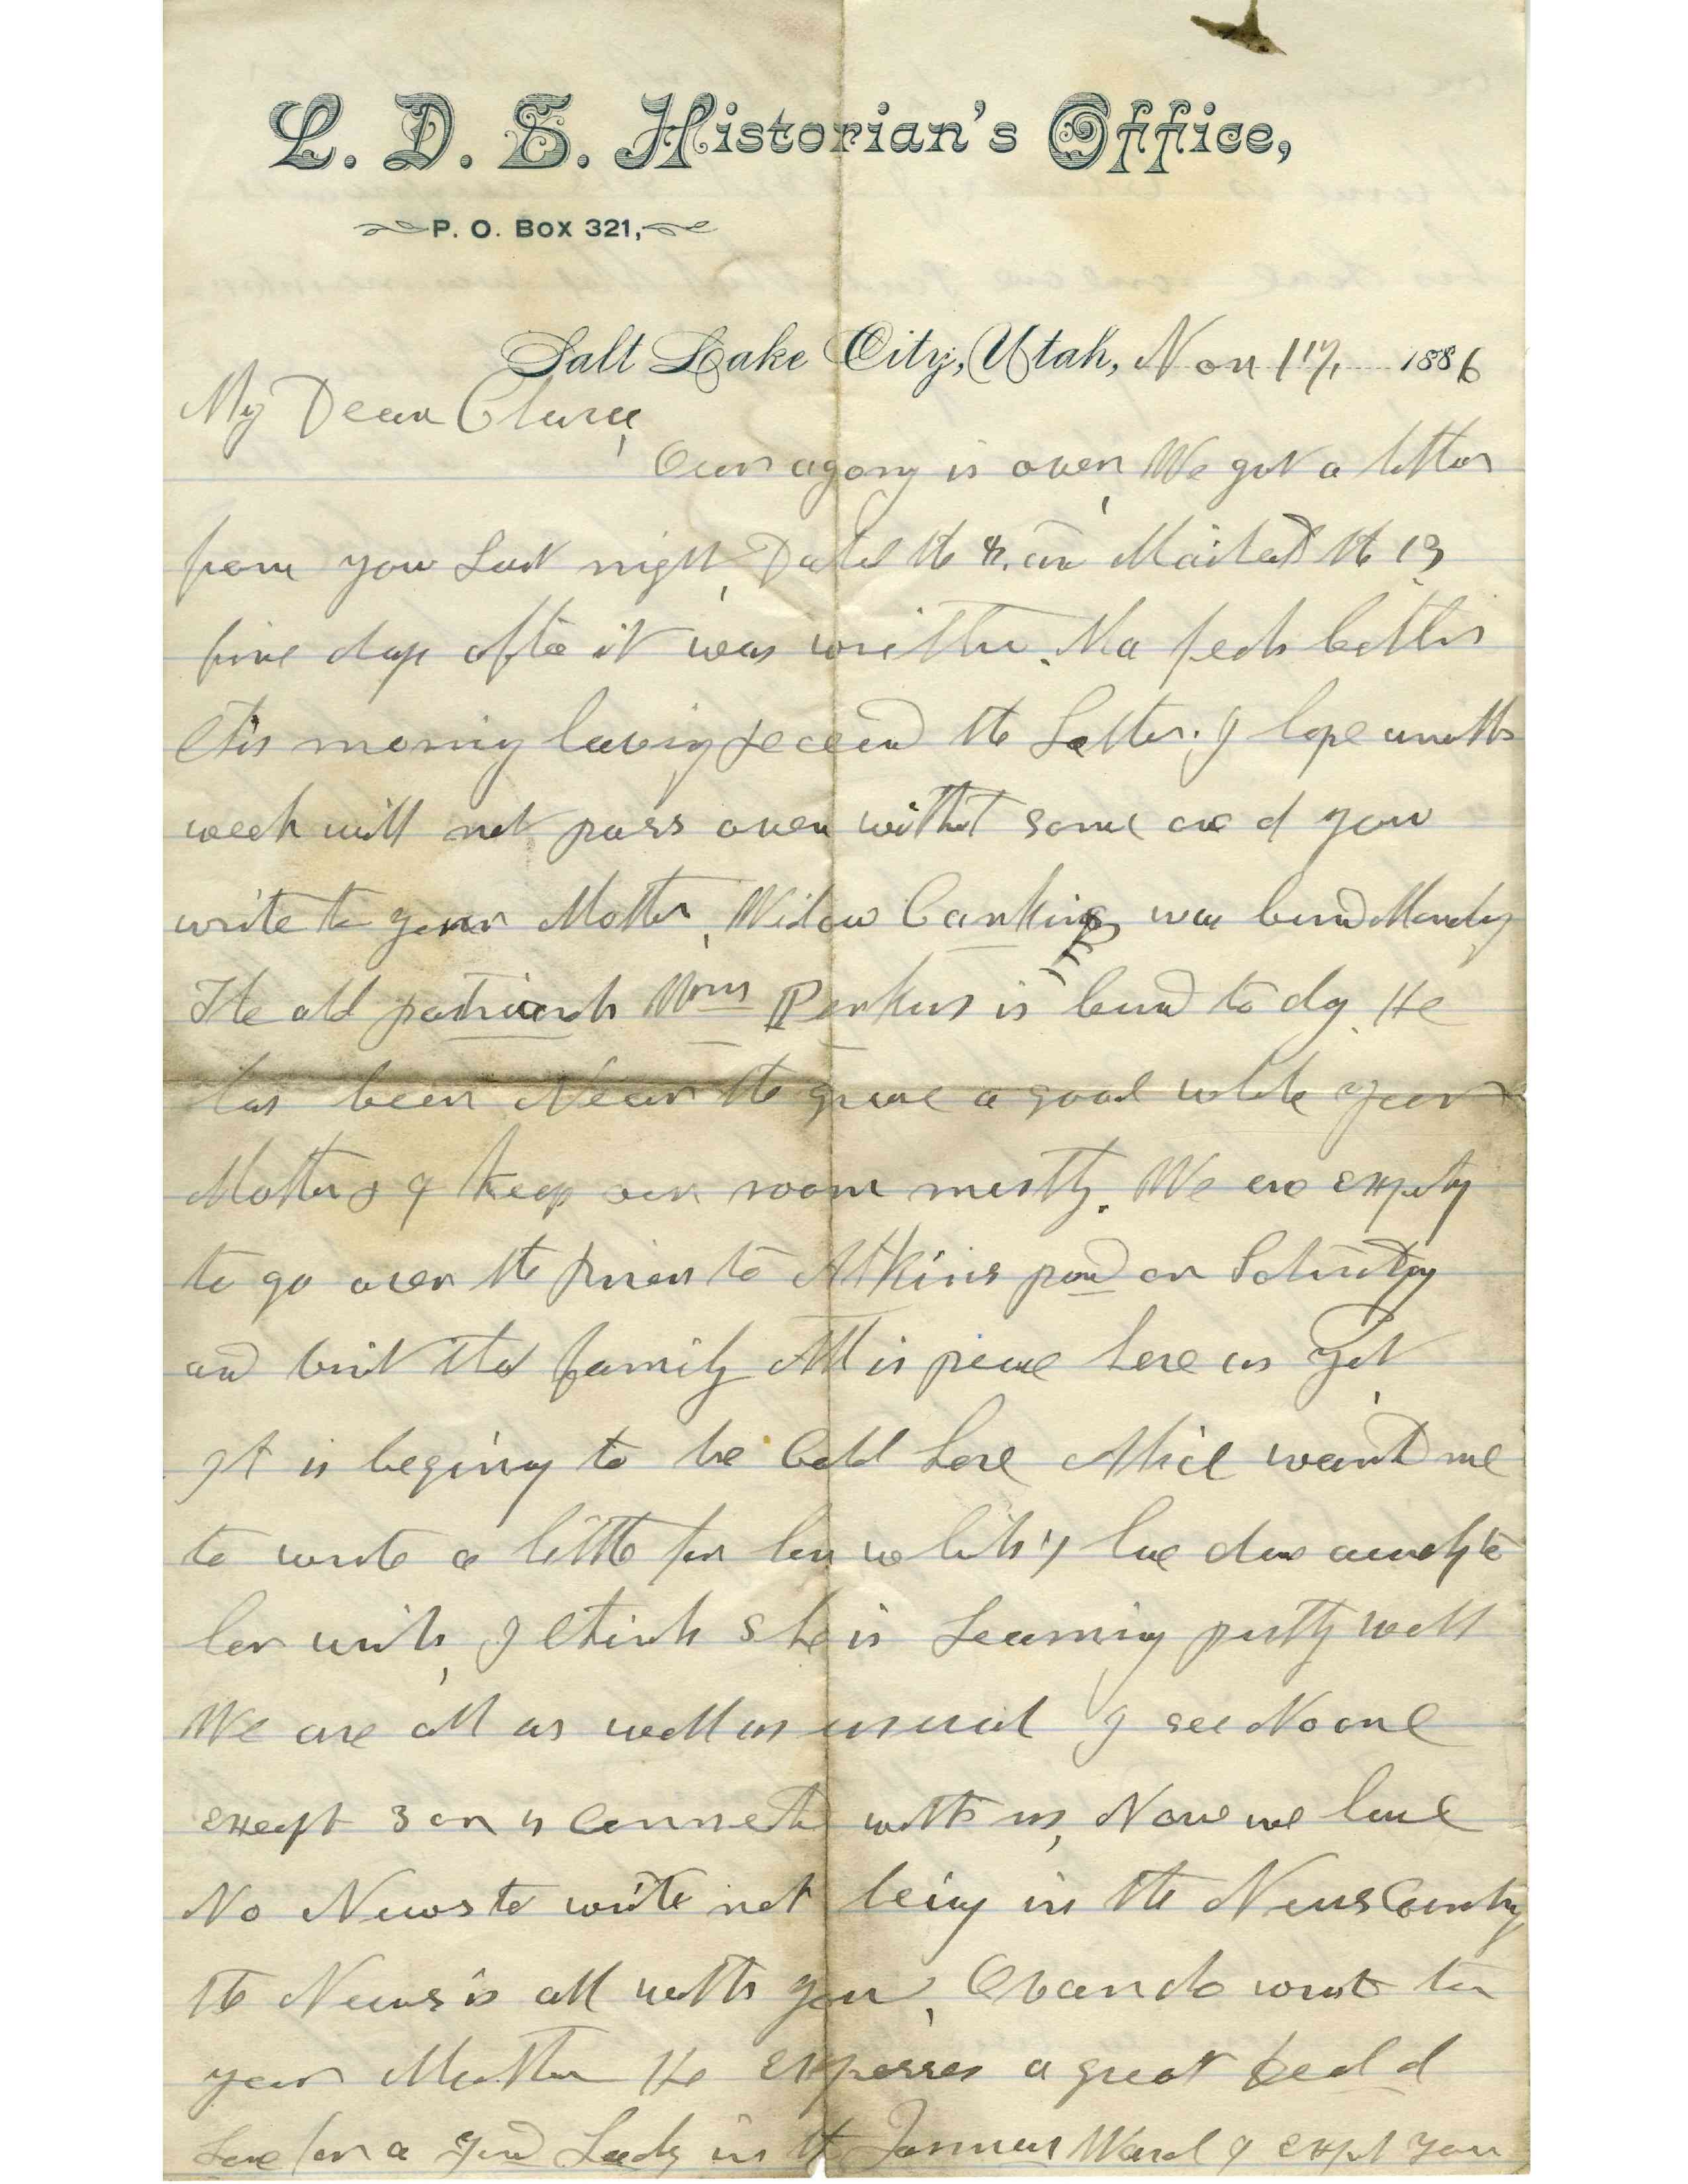 L. D. S. Historian's Office,
P. O. Box 321,
Salt Lake City, Utah, Nov 17, 1886
My Dear Clara,
Our agony is over, We got a letter
from you Last night, Dated the 8. and Mailed the 13
five days after it was written. Ma feels better
this morning having received the Letter. I hope another
week will not pass over without some one of you
write to your Mother, Widow was buried Monday
The old patriarch Wm Perkins is buried to day. He
has been Near the grave a good while your
Mother & I keep our room mostly. We are expecting
to go over the River to Atkins pond on Saturday
and visit that family All is peace here as Yet,
It is begining to be Cold here Alice wanted me
to write a little for her
her write, I think she is Learning pretty well
We are all as well as usual I see No one
except 3 or 4 Connected with us, Now we have
No News to write not being in the News County
the News is all with you, Ovando wrote to
your Mother He expresses a great deal of
Love for a Young Lady in the Ward I expect you